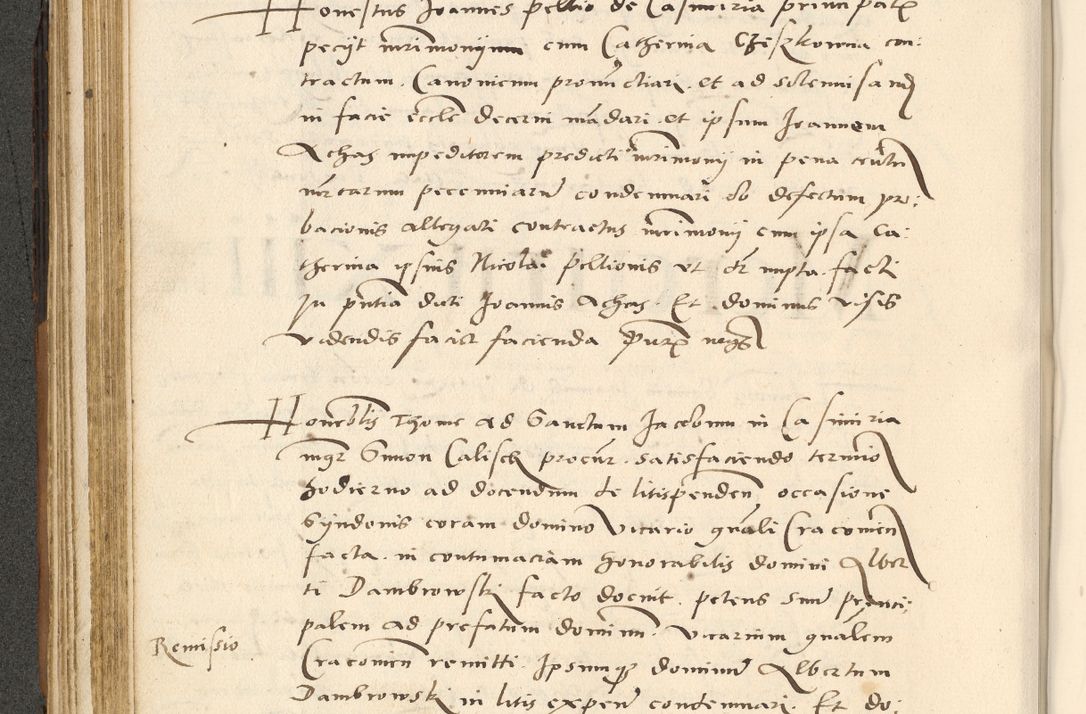 Honestus Joannes Pellio de Casimiria principalr
peciit mrimonijum cum Catherina Czeszkowna con:
tractum. Canonicum pronuctiari. et ad solemnisand
in facie eccle decerni madari. et ipsum Joannem
Achas impeditorem predicti mrimonij in pena centu
mrcarum pecenniaru condemnari ob defectum pro:
bacionis allegati contractus mrimonij cum ipsa Ca:
therina ipsius Nicolai Pellionis ut dr nupta. facti
In pntia dicti Joannis Achas. Et dominus visis
videndis facier facienda
Honeblis Thome ad Sanctum Jacobum in Casimiria
mgr Simon Calisch procur. satisfaciendo termino
hodierno ad docendum de litispenden occasione
Syndonis coram domino Vicario gnali Cracovien
facta. in contumaciam honorabilis domini Alber
ti Dambrowski facto docuit. petens suum princi:
palem ad prefatum dominum. Vicarium gnalem
Remissio
Cracovien remitti. Ipsumqz dominum Albertum
Dambrowski in litis expen condemnari. Et do: